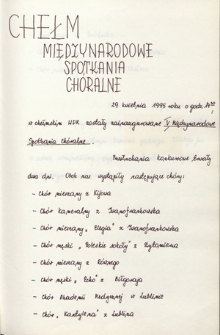 CHEŁM
MIĘDZYNARODOWE
SPOTKANIA
CHÓRALNE
29 kwietnia 1995 roku o godz.
w chełmskim WDK zostały zainaugurowane V Międzynarodowe
Spotkania Chóralne.
Przesłuchania konkursowe trwały
dwa dni. Obok nas wystąpiły następujące chóry:
- chór mieszany z Kijowa
- chór kameralny z Iwanofrankowska
- chór mieszany "Elegia" z Iwanofrankowska
- chór męski "Poleskie sokoły" z Żytomierza
- chór mieszany z Równego
- chór męski "Echo" z Biłgoraja
- chór Akademii Medycznej w Lublinie
- chór "Kantylena" z Lublina